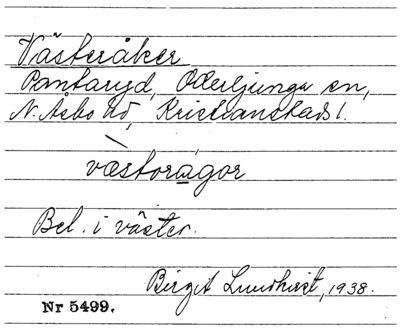 Västeråker
Pantaryd, Oderljunga sn,
N. Åsbo hd, Kristianstads l.
væstoragor
Bel. i väster.
Birgit Lundkvist, 1938.
Nr 5499.